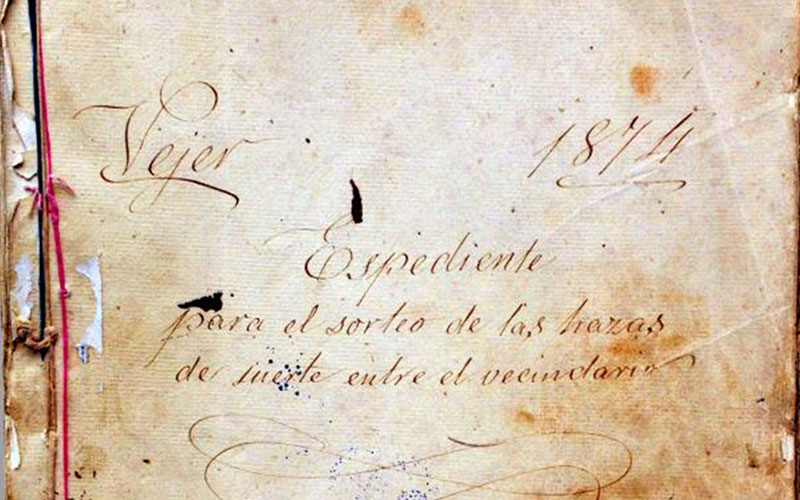 Vejer 1874
Espediente
para el sorteo de las hazas
de suerte entre el vecindario